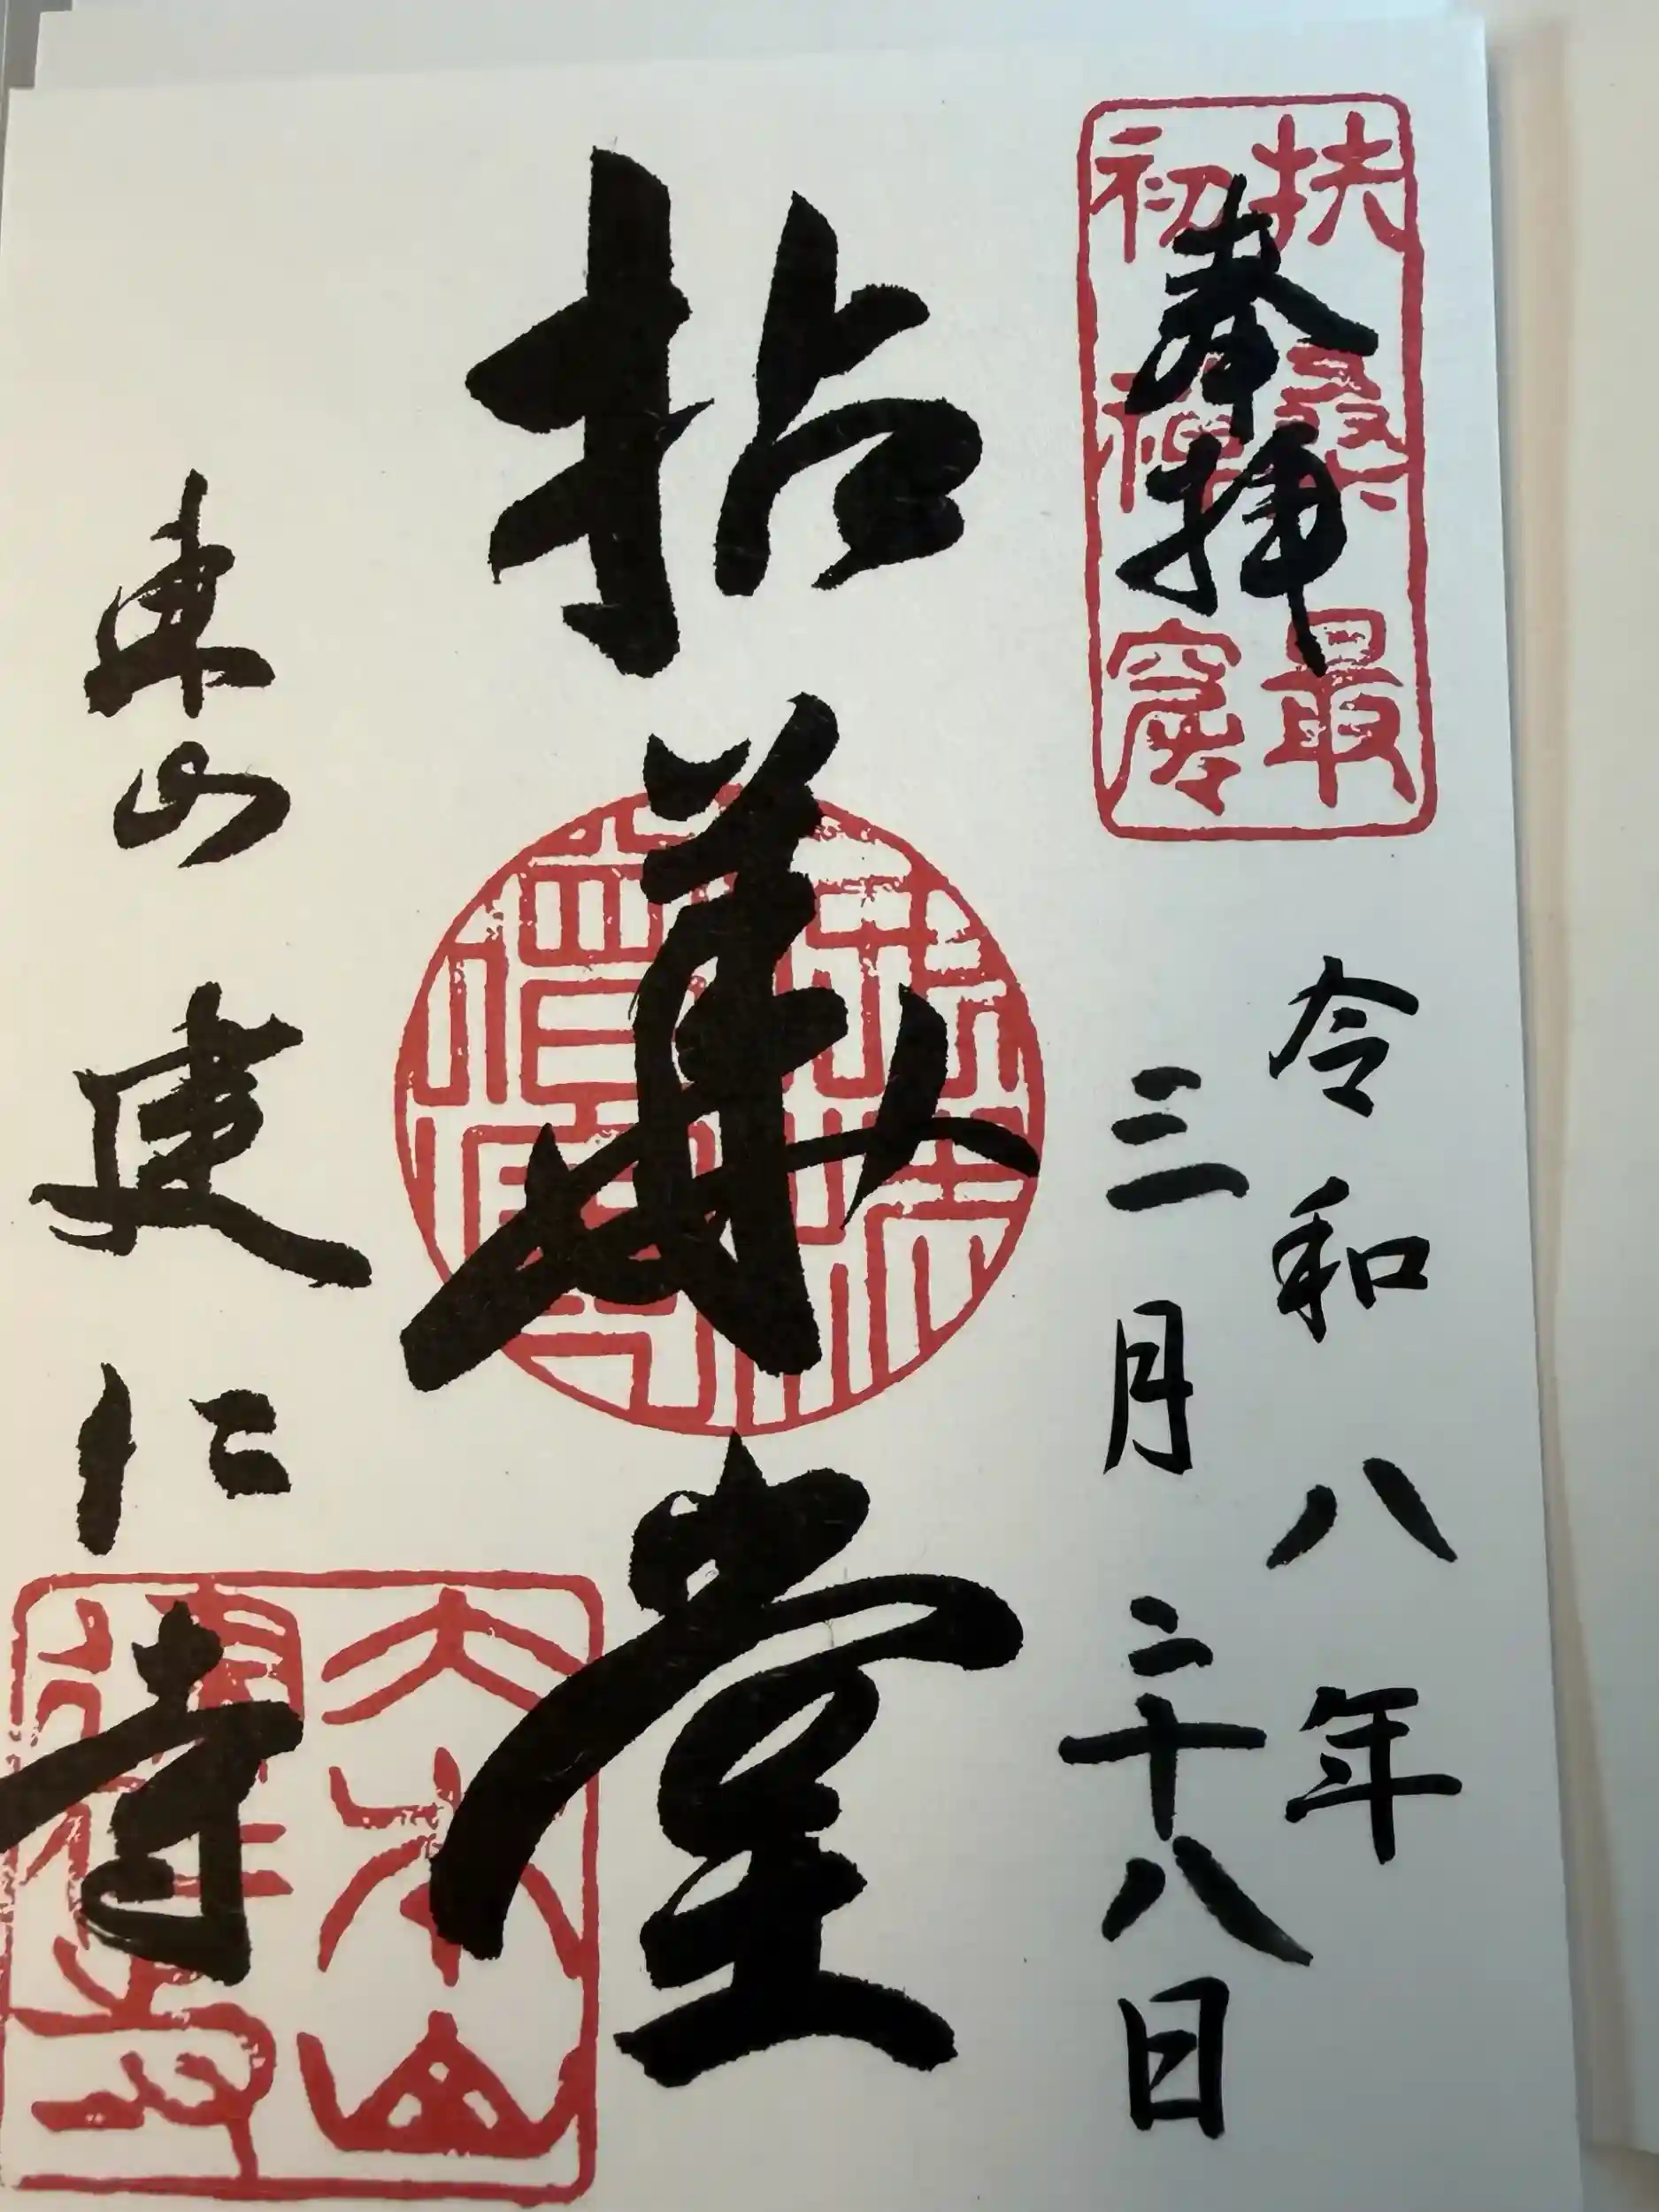 奉拝
扶桑最
初禅窟
令和八年
三月二十八日
拈華堂
東山
建仁寺
大本山
建仁寺印